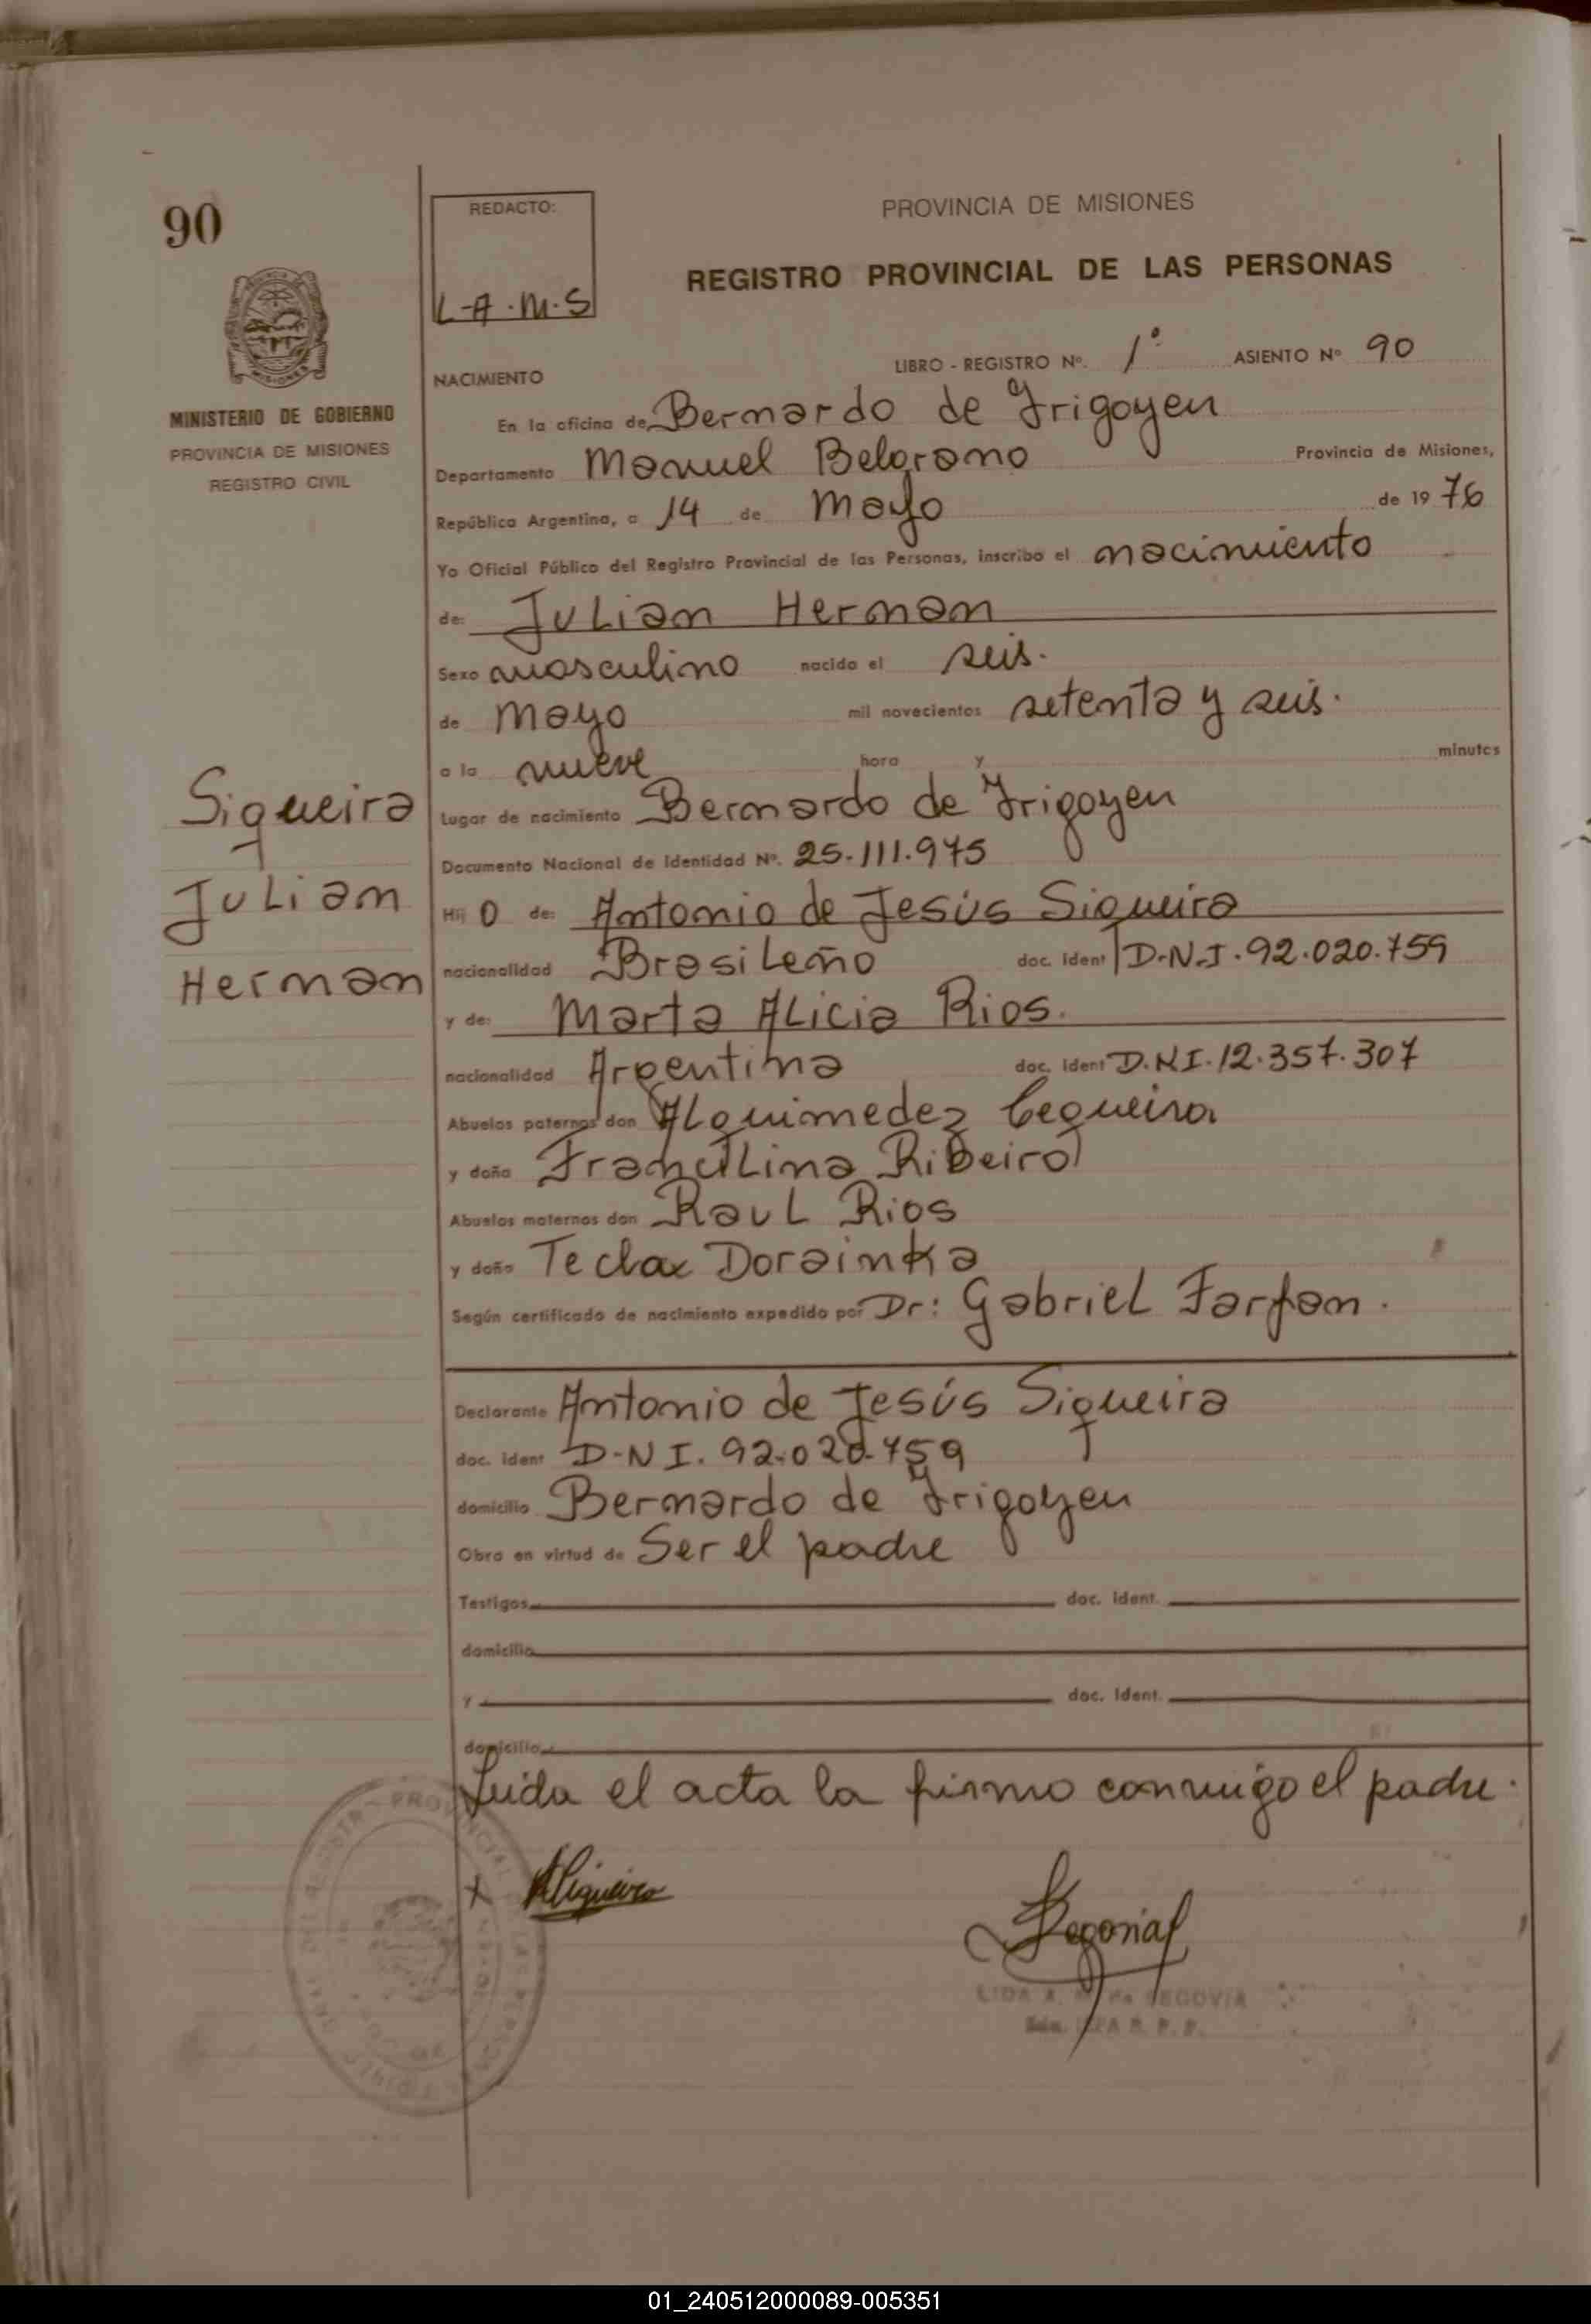 90
REDACTO:
L-A.M.S
PROVINCIA DE MISIONES
REGISTRO PROVINCIAL DE LAS PERSONAS
MINISTERIO DE GOBIERNO
PROVINCIA DE MISIONES
REGISTRO CIVIL
NACIMIENTO
LIBRO - REGISTRO Nº. 1º ASIENTO Nº 90
En la oficina de Bernardo de Irigoyen
Departamento Manuel Belgrano Provincia de Misiones,
República Argentina, a 14 de Mayo de 1976
Yo Oficial Público del Registro Provincial de las Personas, inscribo el nacimiento
de: Julian Hernan
Sexo masculino nacido el seis.
de Mayo mil novecientos setenta y seis.
a la nueve hora y minutos
Lugar de nacimiento Bernardo de Irigoyen
Documento Nacional de Identidad Nº. 25.111.975
Hij O de: Antonio de Jesús Siqueira
nacionalidad Brasileño doc. ident D.N.I. 92.020.759
y de: Marta Alicia Rios.
nacionalidad Argentina doc. ident D.N.I. 12.357.307
Abuelos paternos don Alquimedez Cequeira
y doña Francilina Ribeiro
Abuelos maternos don Raul Rios
y doña Tecla Dorainka
Según certificado de nacimiento expedido por Dr: Gabriel Farfan.
Siqueira
Julian
Hernan
Declarante Antonio de Jesús Siqueira
doc. ident D-N I. 92.020.759
domicilio Bernardo de Irigoyen
Obra en virtud de Ser el padre
Testigos doc. ident.
domicilio
y doc. ident.
domicilio
Leida el acta la firmo conmigo el padre.
x ASiqueira
LIDA A. M. de SEGOVIA
R. P. P.
01_240512000089-005351